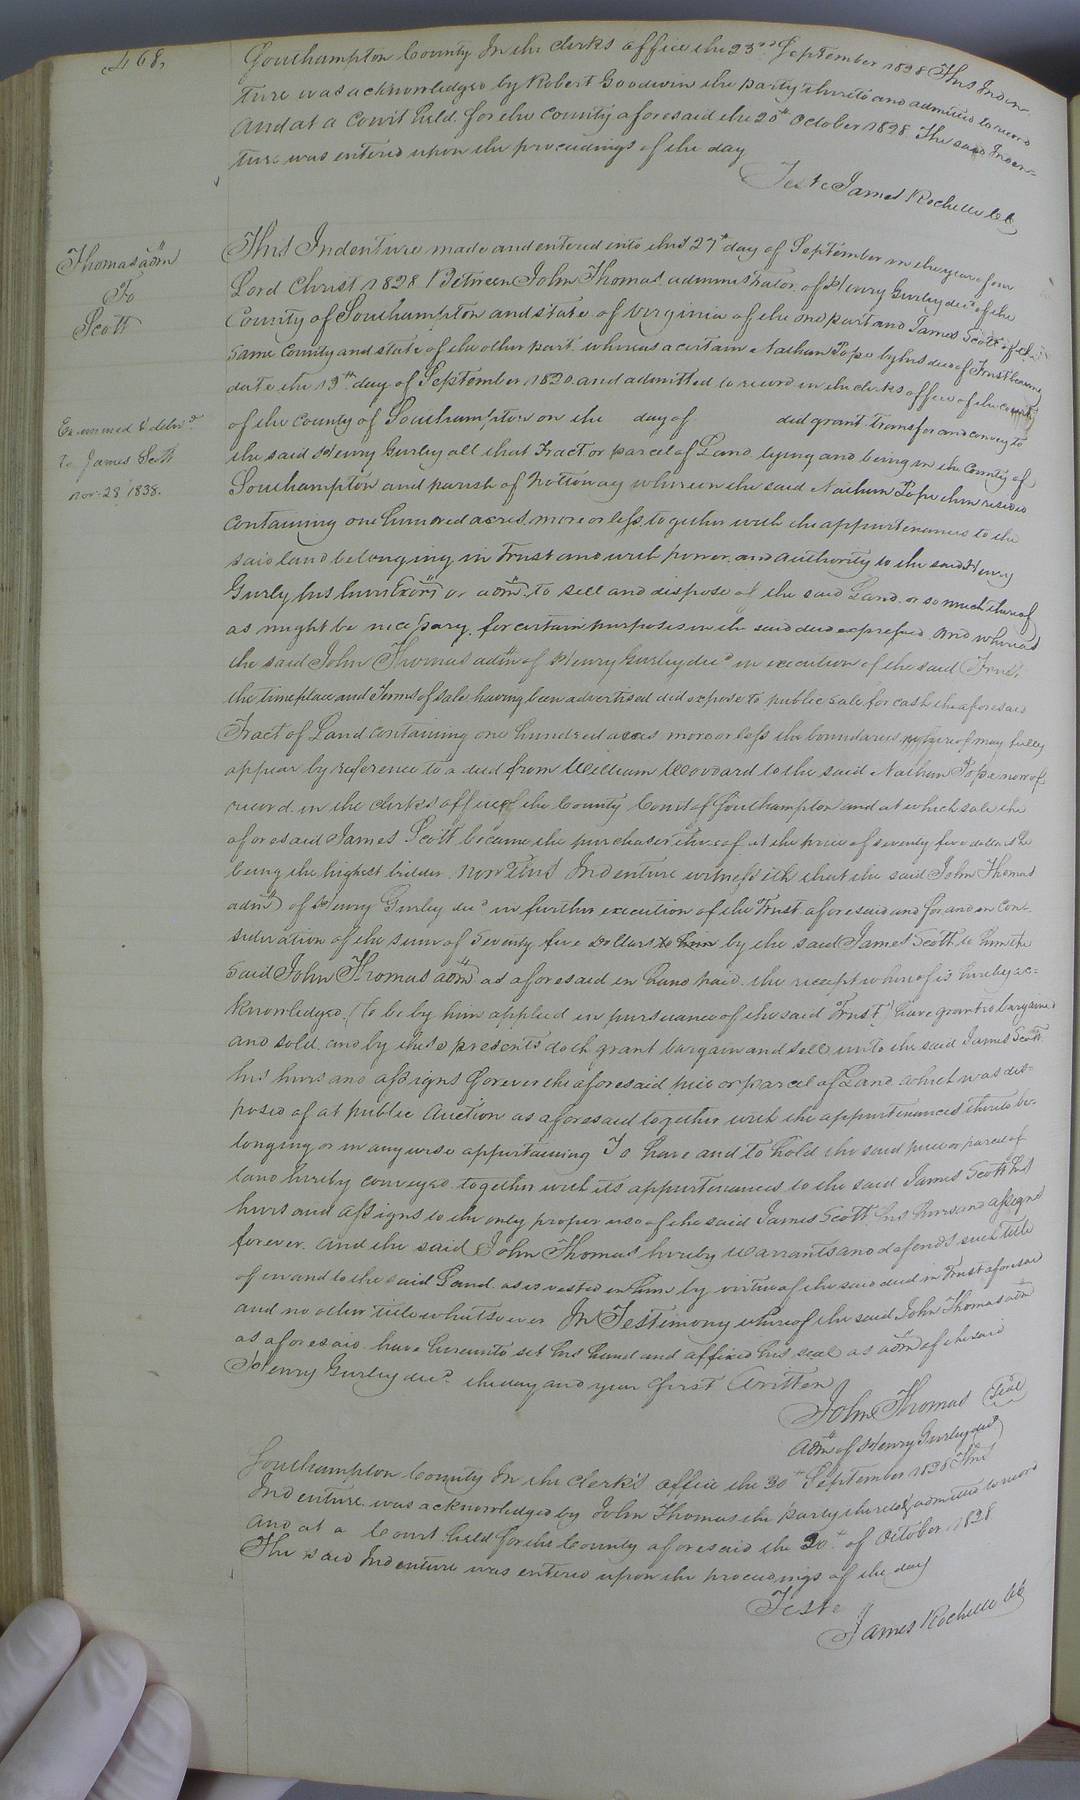 468,
Southampton County In the clerks office the 23rd September 1828 This Inden-
ture was acknowledged by Robert Goodwin the party thereto and admitted to record
And at a Court held for the County aforesaid the 20th October 1828. The said Inden-
ture was entered upon the proceedings of the day
Teste James Rochelle CC
Thomas admr
To
Scott
This Indenture made and entered into this 27th day of September in the year of our
Lord Christ 1828 Between John Thomas administrator of Henry Gurley decd of the
County of Southampton and state of Virginia of the one part and James Scott of the
same County and state of the other part whereas a certain Nathan Pope by his deed of Trust bearing
date the 19th day of September 1820 and admitted to record in the clerks office of the county
of the County of Southampton on the day of did grant transfer and convey to
the said Henry Gurley all that Tract or parcel of Land lying and being in the County of
Southampton and parish of Nottoway whereon the said Nathan Pope then resided
Containing one hundred acres more or less, together with the appurtenances to the
said land belonging in Trust and with power and authority to the said Henry
Gurly his heirs Exors or admrs to sell and dispose of the said Land or so much thereof
as might be necessary for certain purposes in the said deed expressed And whereas
the said John Thomas admr of Henry Gurley decd in execution of the said Trust,
the time place and Terms of sale having been advertised did expose to public sale for cash the aforesaid
Tract of Land Containing one hundred acres more or less the boundaries whereof may fully
appear by reference to a deed from William Woodard to the said Nathan Pope now of
record in the clerk's office of the County Court of Southampton and at which sale the
aforesaid James Scott became the purchaser thereof at the price of seventy five dollars he
being the highest bidder. Now This Indenture witnesseth that the said John Thomas
admr of Henry Gurley decd in further execution of the Trust aforesaid and for and in con-
sideration of the sum of Seventy five Dollars to him by the said James Scott to him the
said John Thomas admr as aforesaid in hand paid the receipt whereof is hereby ac-
knowledged, (to be by him applied in pursuance of the said Trust) have granted bargained
and sold and by these presents doth grant bargain and sell unto the said James Scott
his heirs and assigns forever the aforesaid piece or parcel of Land which was dis-
posed of at public Auction as aforesaid together with the appurtenances thereto be-
longing or in any wise appurtaining To have and to hold the said piece or parcel of
land hereby conveyed together with its appurtenances to the said James Scott his
heirs and assigns to the only proper use of the said James Scott his heirs and assigns
forever. And the said John Thomas hereby warrants and defends such title
of in and to the said Land as is vested in him by virtue of the said deed in Trust aforesaid
and no other title whatsoever In Testimony whereof the said John Thomas admr
as aforesaid have hereunto set his hand and affixed his seal as admr of the said
Henry Gurley decd the day and year first Written
John Thomas Seal
Admr of Henry Gurley decd
Examined & delivd
to James Scott
Nov. 28 1838.
Southampton County In the clerk's office the 30th September 1828 This
Indenture was acknowledged by John Thomas the party thereto & admitted to record
And at a Court held for the County aforesaid the 20th of October 1828
The said Indenture was entered upon the proceedings of the day
Teste
James Rochelle CC